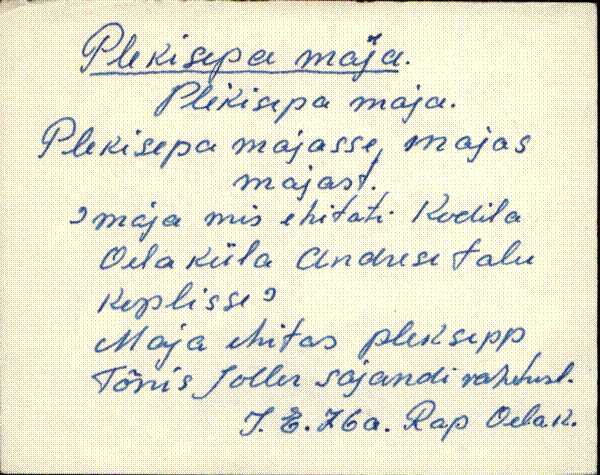 Plekisepa maja.
Plekisepa maja.
Plekisepa majasse, majas
majast.
maja mis ehitati Kodila
Oela küla Andrese talu
koplisse
Maja ehitas pleksepp
Tõnis Joller sajandi vahetust.
J. E. 76a. Rap Oela k.